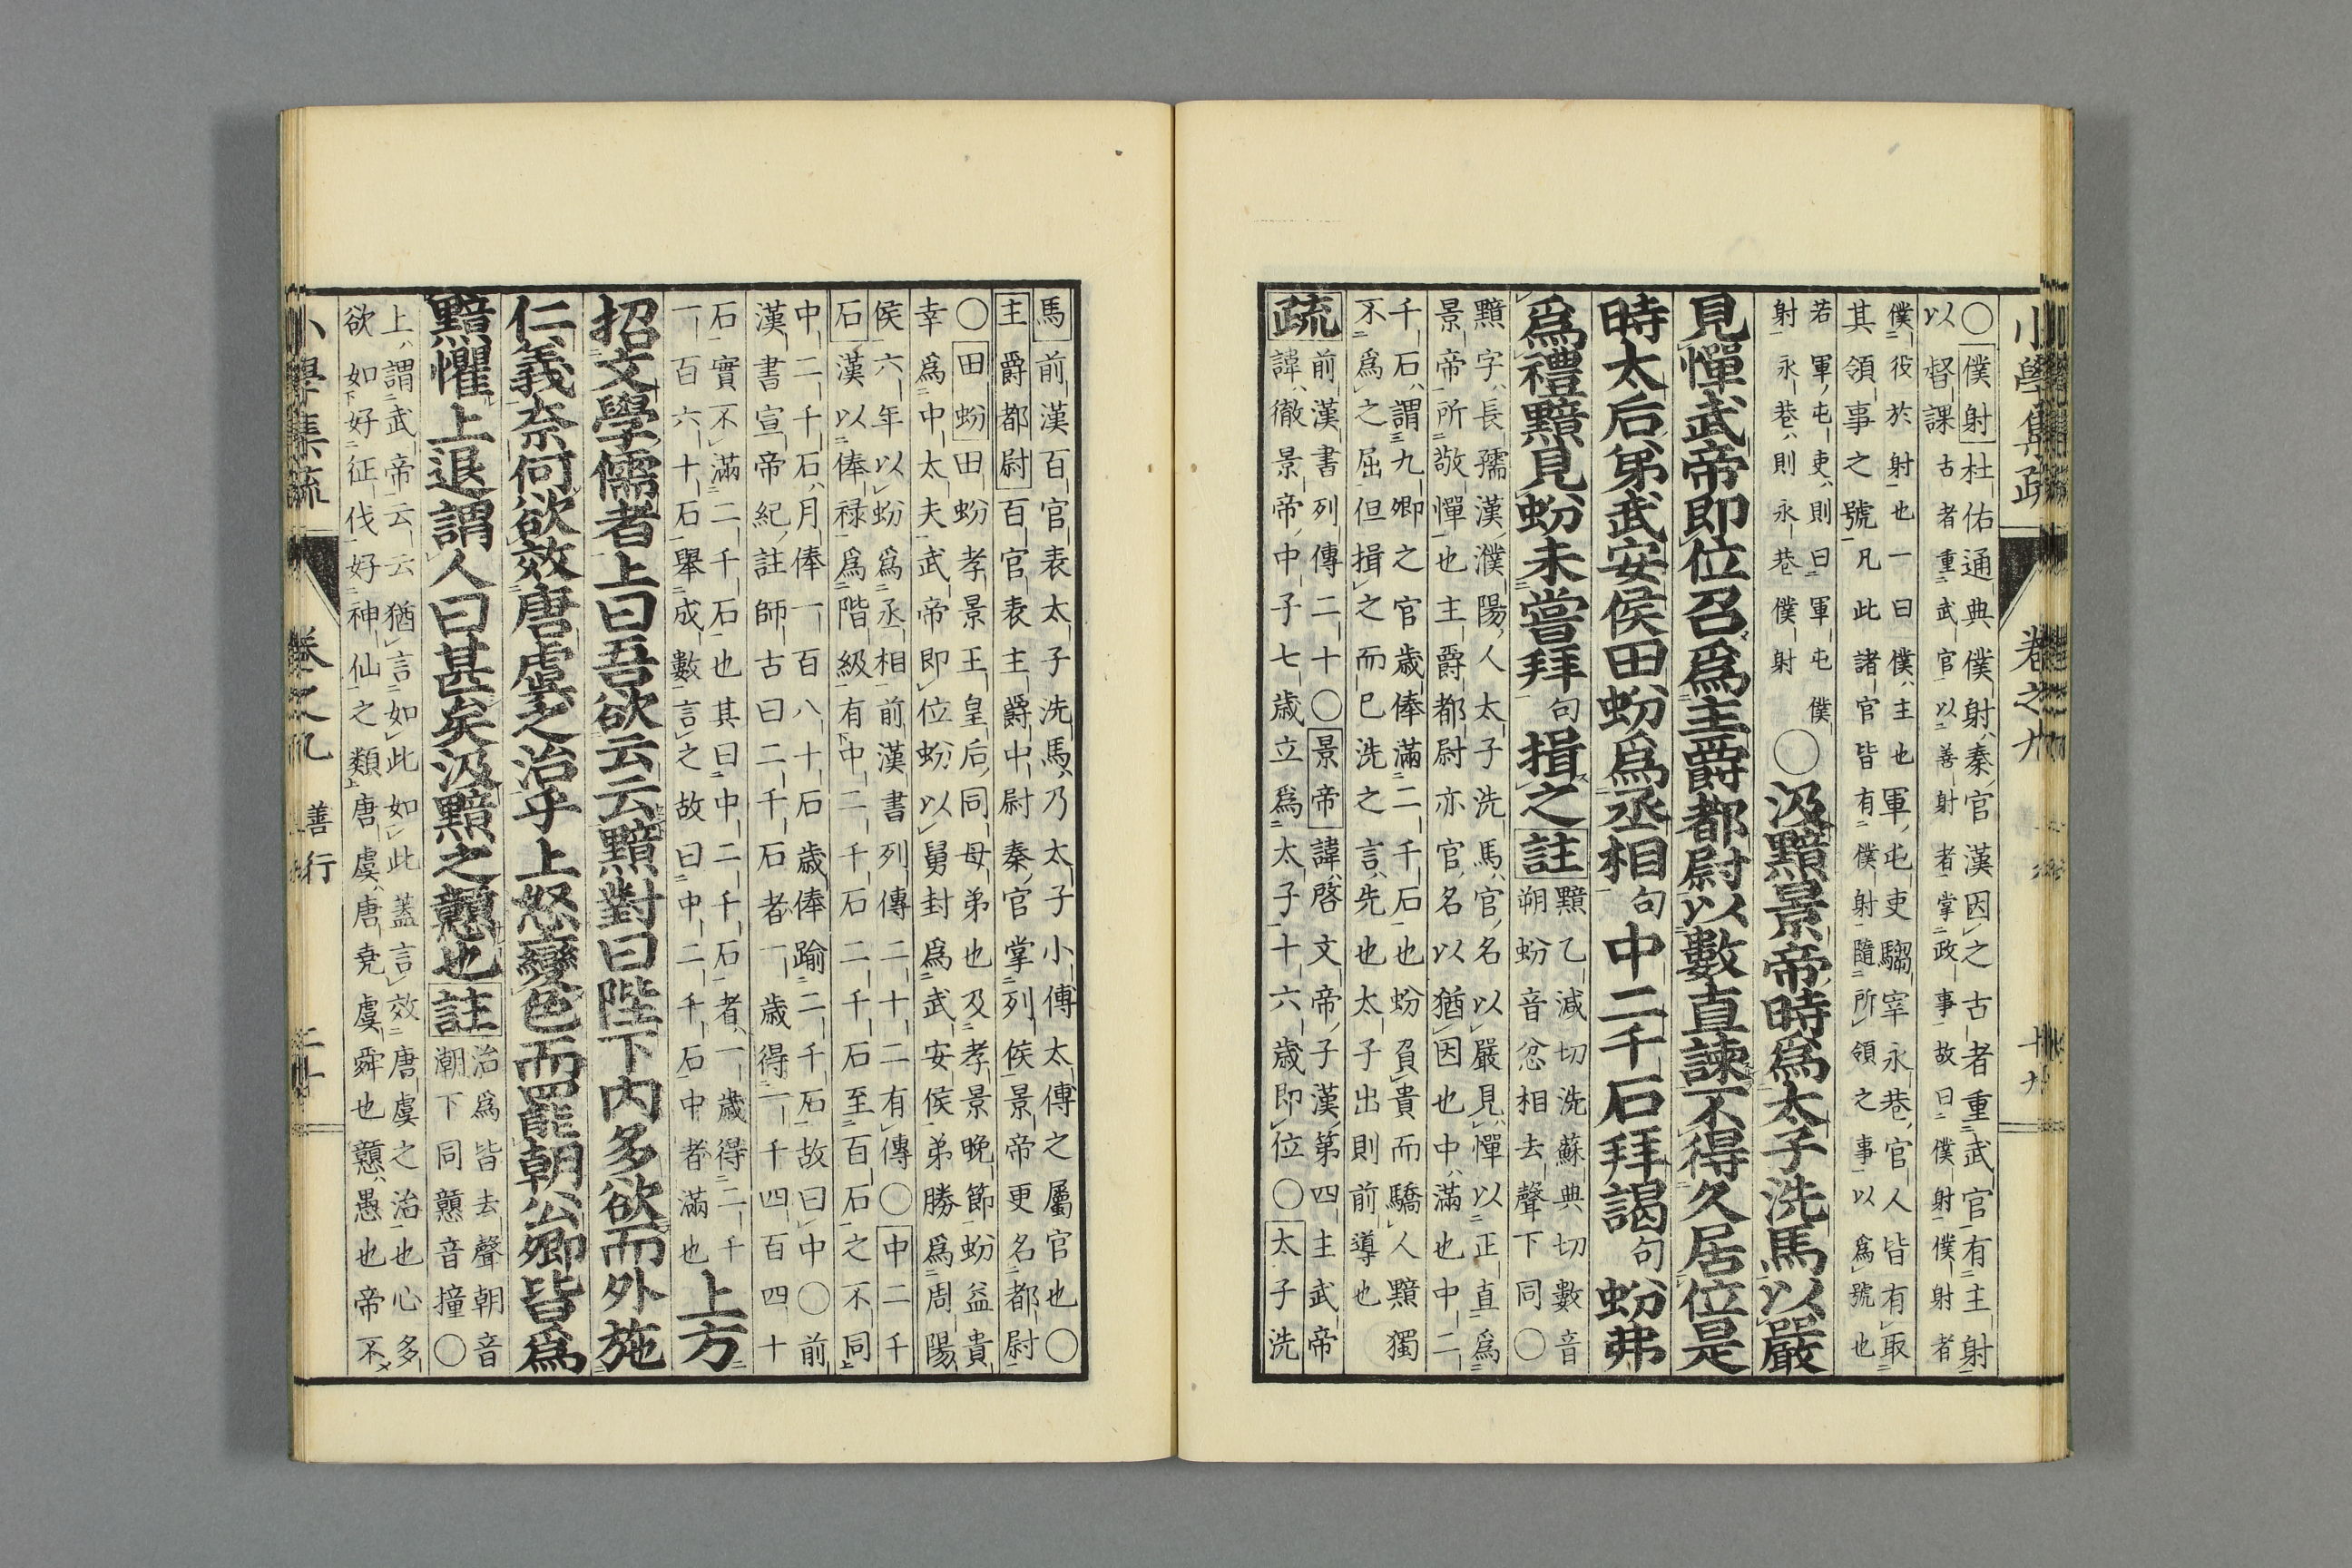 小學集疏 卷之九 十九
○僕射杜佑通典僕射秦官漢因之古者重武官有主射
以督課古者重武官以善射者掌政事故曰僕射僕射者
僕役於射也一曰僕主也軍屯吏騶宰永巷官人皆有取
其領事之號凡此諸官皆有僕射隨所領之事以爲號也
若軍屯吏則曰軍屯僕
射永巷則永巷僕射
○汲黯景帝時爲太子洗馬以嚴
見憚武帝即位召爲主爵都尉以數直諫不得久居位是
時太后弟武安侯田蚡爲丞相句中二千石拜謁句蚡弗
爲禮黯見蚡未嘗拜句揖之註
黯乙減切洗蘇典切數音
朔蚡音忿相去聲下同○
黯字長孺漢濮陽人太子洗馬官名以嚴見憚以正直爲
景帝所敬憚也主爵都尉亦官名以猶因也中滿也中二
千石謂九卿之官歲俸滿二千石也蚡負貴而驕人黯獨
不爲之屈但揖之而已洗之言先也太子出則前導也
疏
前漢書列傳二十○景帝諱啓文帝子漢第四主武帝
諱徹景帝中子七歲立爲太子十六歲即位○太子洗
馬前漢百官表太子洗馬乃太子小傅太傅之屬官也○
主爵都尉百官表主爵中尉秦官掌列侯景帝更名都尉
○田蚡田蚡孝景王皇后同母弟也及孝景晚節蚡益貴
幸爲中太夫武帝即位蚡以舅封爲武安侯弟勝爲周陽
侯六年以蚡爲丞相前漢書列傳二十二有傳○中二千
石漢以俸祿爲階級有中二千石二千石至百石之不同
中二千石月俸一百八十石歲俸踰二千石故曰中○前
漢書宣帝紀註師古曰二千石者一歲得一千四百四十
石實不滿二千石也其曰中二千石者一歲得二千
一百六十石舉成數言之故曰中二千石中者滿也
上方
招文學儒者上曰吾欲云云黯對曰陛下内多欲而外施
仁義奈何欲效唐虞之治乎上怒變色而罷朝公卿皆爲
黯懼上退謂人曰甚矣汲黯之戇也註
治爲皆去聲朝音
潮下同戇音撞○
上謂武帝云云猶言如此如此蓋言效唐虞之治也心多
欲如好征伐好神仙之類唐虞唐堯虞舜也戇愚也帝不
小學集疏 卷之九 善行